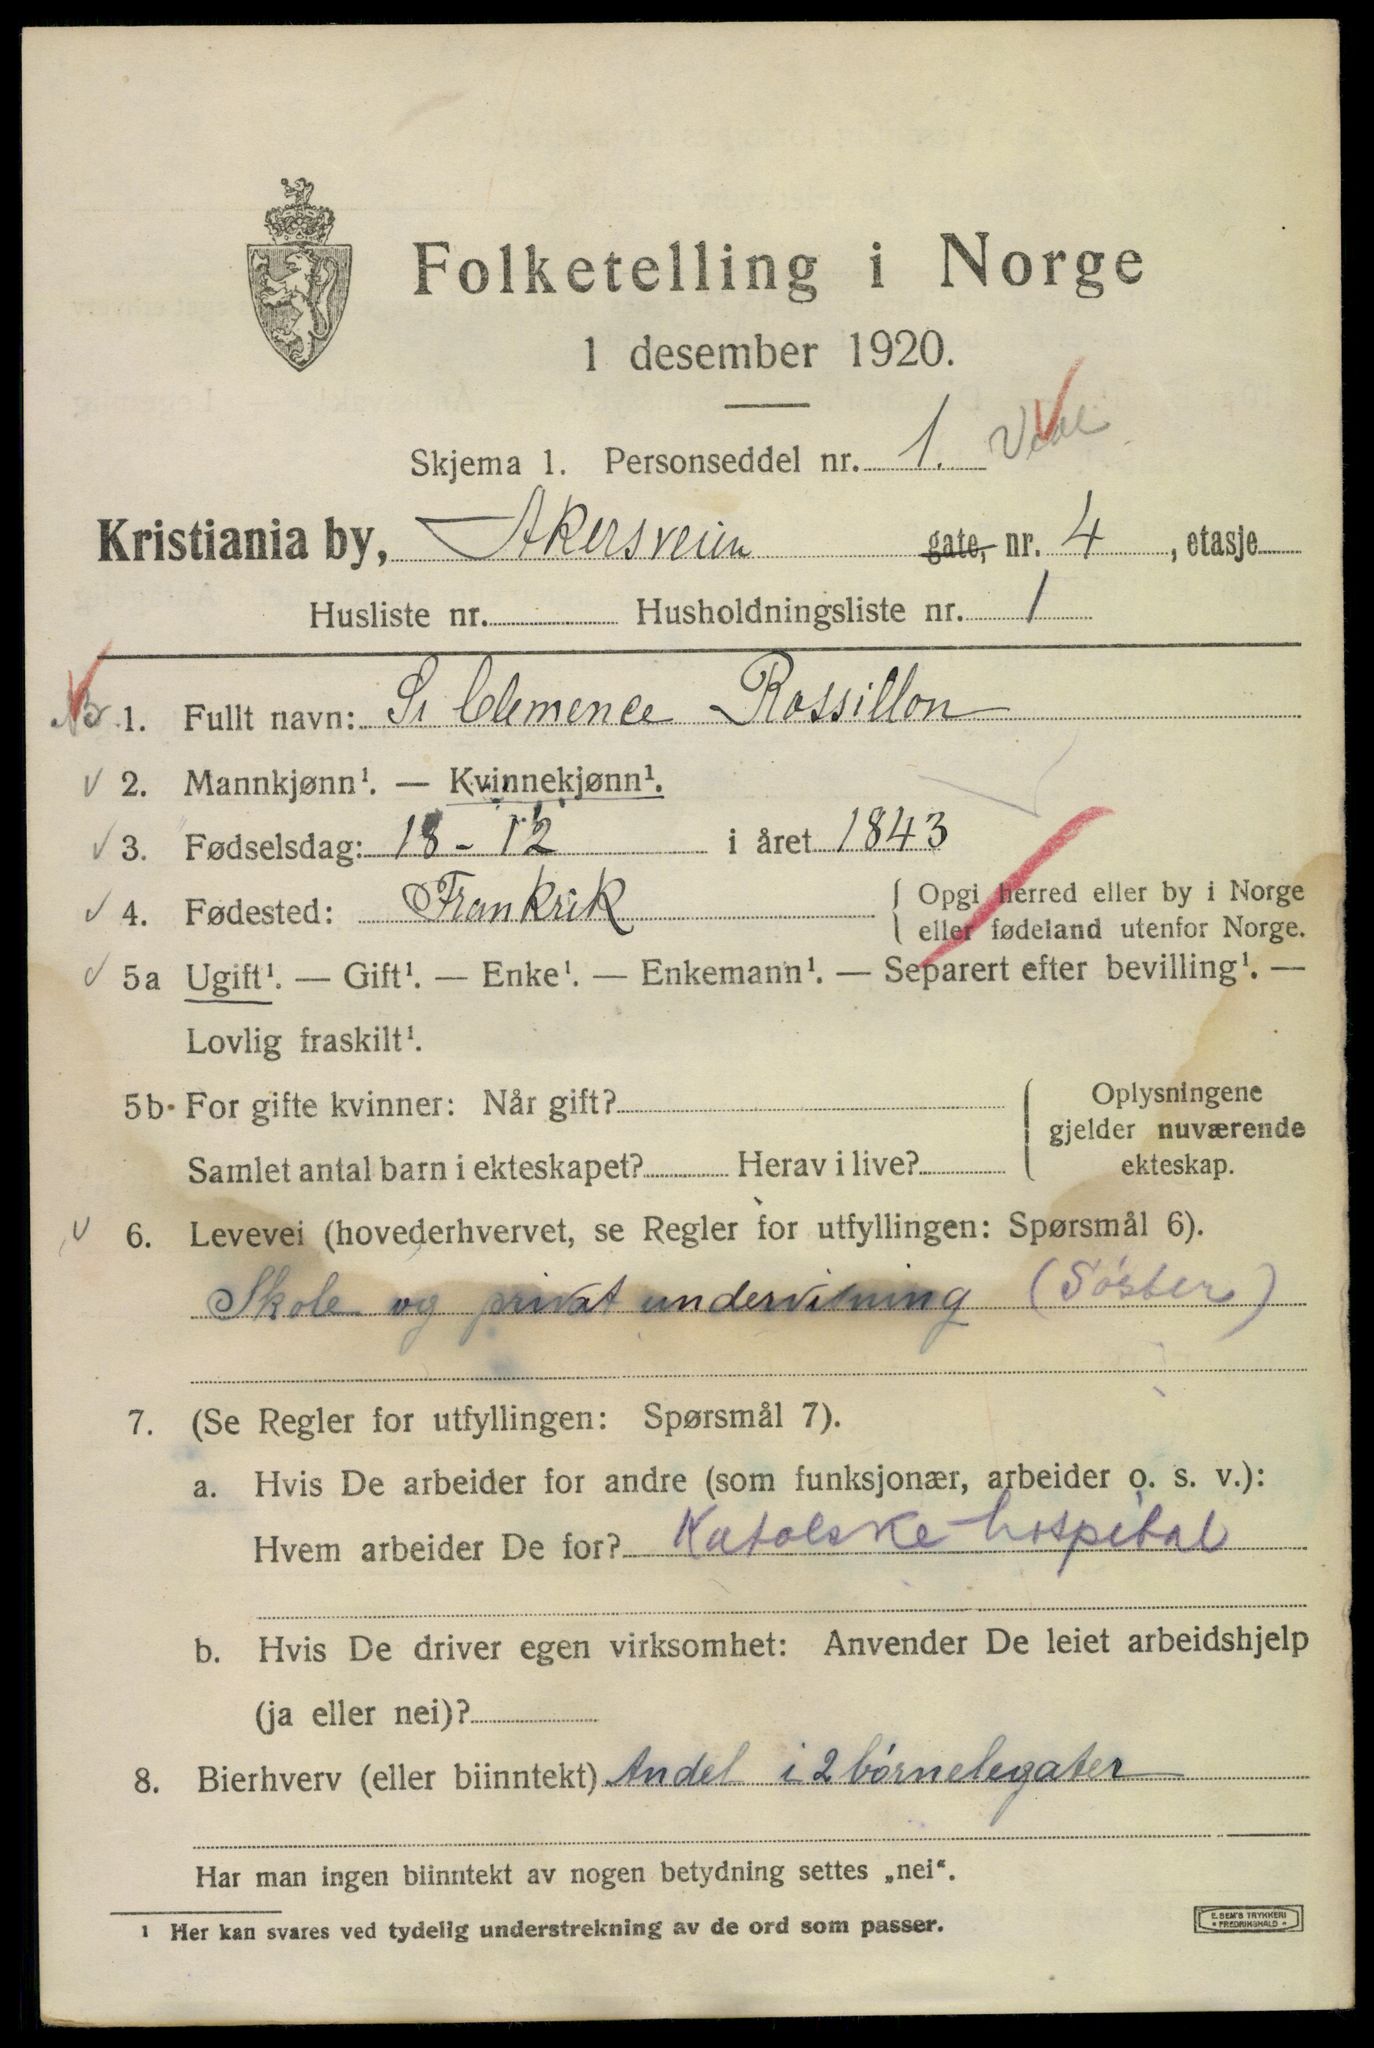 Folketelling i Norge
1 desember 1920.
Skjema 1. Personseddel nr. 1.
Kristiania by, Akersveien gate, nr. 4, etasje
Husliste nr. Husholdningsliste nr. 1
1. Fullt navn: Sr Clemence Rossillon
2. Mannkjønn¹. — Kvinnekjønn¹.
3. Fødselsdag: 18 - 12 i året 1843
4. Fødested: Frankrik { Opgi herred eller by i Norge
eller fødeland utenfor Norge.
5a Ugift¹. — Gift¹. — Enke¹. — Enkemann¹. — Separert efter bevilling¹. —
Lovlig fraskilt¹.
5b. For gifte kvinner: Når gift? { Oplysningene
gjelder nuværende
Samlet antal barn i ekteskapet? Herav i live? ekteskap.
6. Levevei (hovederhvervet, se Regler for utfyllingen: Spørsmål 6).
Skole og privat undervisning (Söster)
7. (Se Regler for utfyllingen: Spørsmål 7).
a. Hvis De arbeider for andre (som funksjonær, arbeider o. s. v.):
Hvem arbeider De for? Katolske hospital
b. Hvis De driver egen virksomhet: Anvender De leiet arbeidshjelp
(ja eller nei)?
8. Bierhverv (eller biinntekt) Andel i 2 børnelegater
Har man ingen biinntekt av nogen betydning settes „nei“.
¹ Her kan svares ved tydelig understrekning av de ord som passer.
E. SEM'S TRYKKERI
• FREDRIKSHALD •